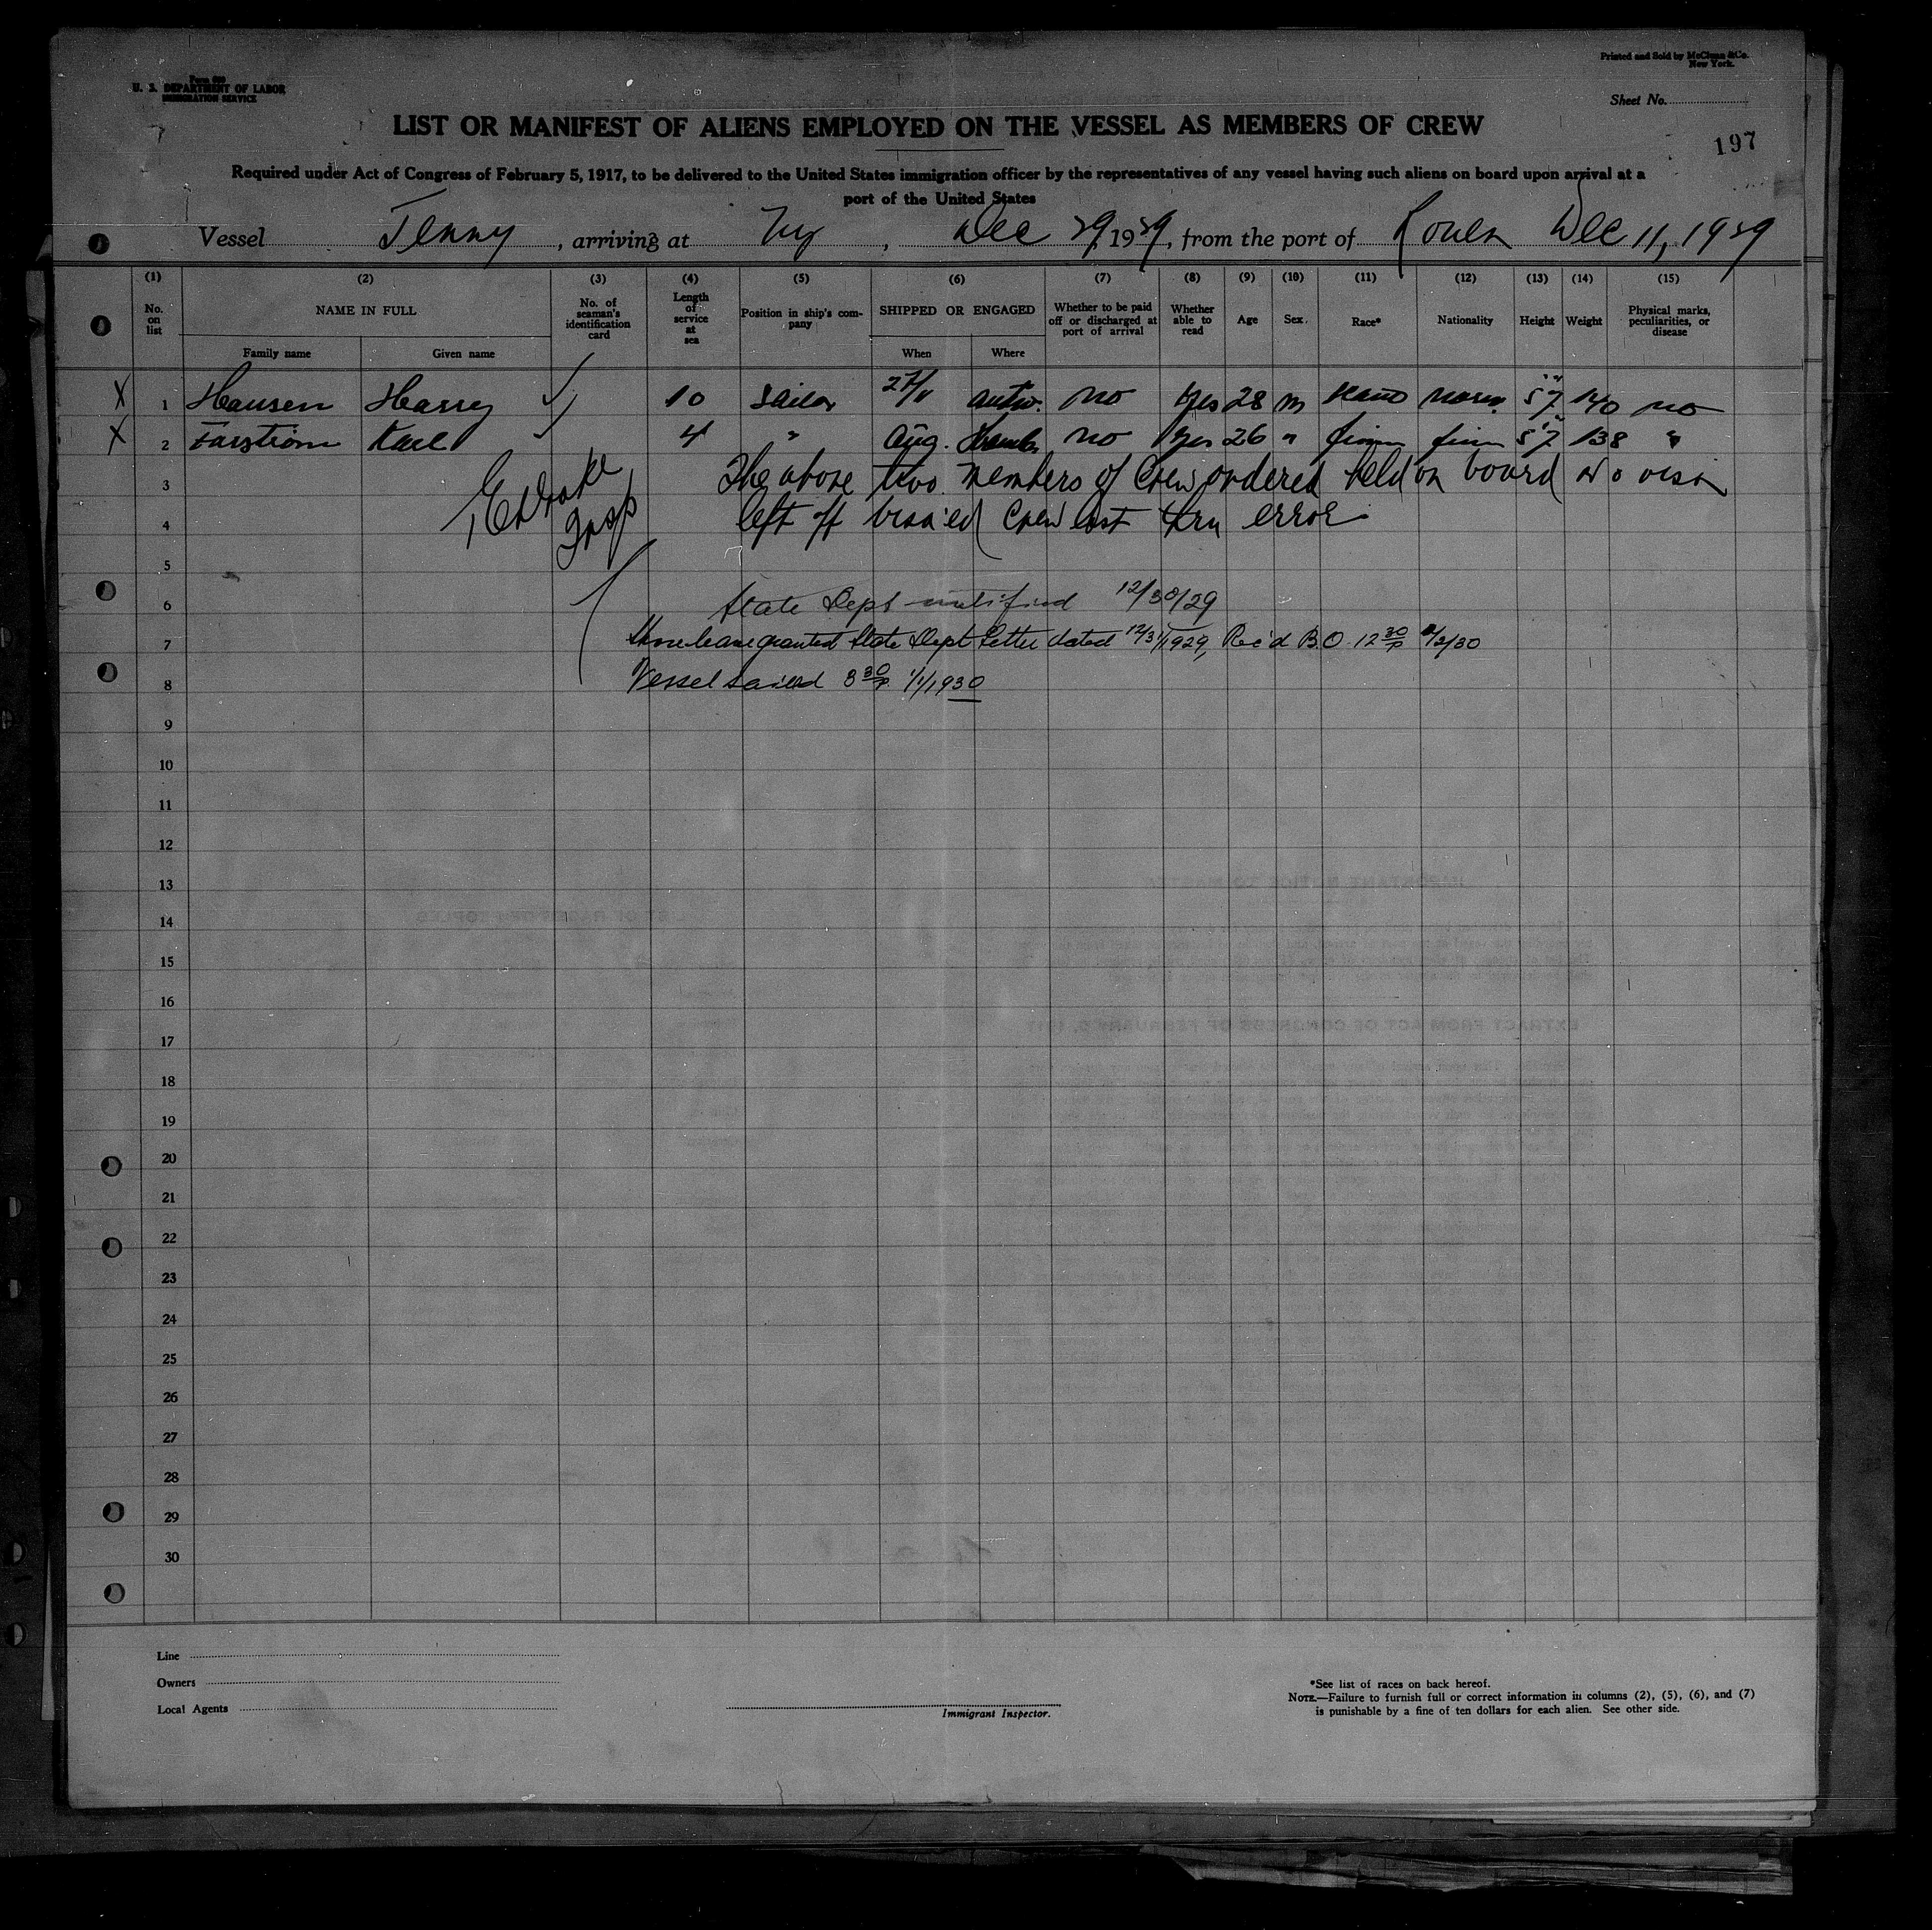 Form 680
U. S. DEPARTMENT OF LABOR
IMMIGRATION SERVICE
Printed and Sold by McClunn & Co.
New York.
Sheet No.
197
LIST OR MANIFEST OF ALIENS EMPLOYED ON THE VESSEL AS MEMBERS OF CREW
Required under Act of Congress of February 5, 1917, to be delivered to the United States immigration officer by the representatives of any vessel having such aliens on board upon arrival at a
port of the United States
Vessel Jenny, arriving at Ny, Dec 29, 1929, from the port of Rouen Dec 11, 1929
(1) (2) (3) (4) (5) (6) (7) (8) (9) (10) (11) (12) (13) (14) (15)
No. on list NAME IN FULL No. of seaman's identification card Length of service at sea Position in ship's company SHIPPED OR ENGAGED Whether to be paid off or discharged at port of arrival Whether able to read Age Sex. Race* Nationality Height Weight Physical marks, peculiarities, or disease
Family name Given name When Where
X 1 Hansen Harry 10 Sailor 27/11 Antw. no yes 28 m Scand norw. 5'7" 140 no
X 2 Farström Karl 4 " Aug. Hamb. no yes 26 " finn finn 5'7" 138 "
3 The above two members of Crew ordered held on board no visa
4 Insp left off visaied Crew list thru error
5
6 State Dept notified 12/30/29
7 Shore leave granted State Dept Letter dated 12/31/1929, Rec'd B.O. 12 30 p 1/2/30
8 Vessel sailed 8 30 p. 1/1/1930
9
10
11
12
13
14
15
16
17
18
19
20
21
22
23
24
25
26
27
28
29
30
Line
Owners
Local Agents
Immigrant Inspector.
*See list of races on back hereof.
NOTE.—Failure to furnish full or correct information in columns (2), (5), (6), and (7)
is punishable by a fine of ten dollars for each alien. See other side.